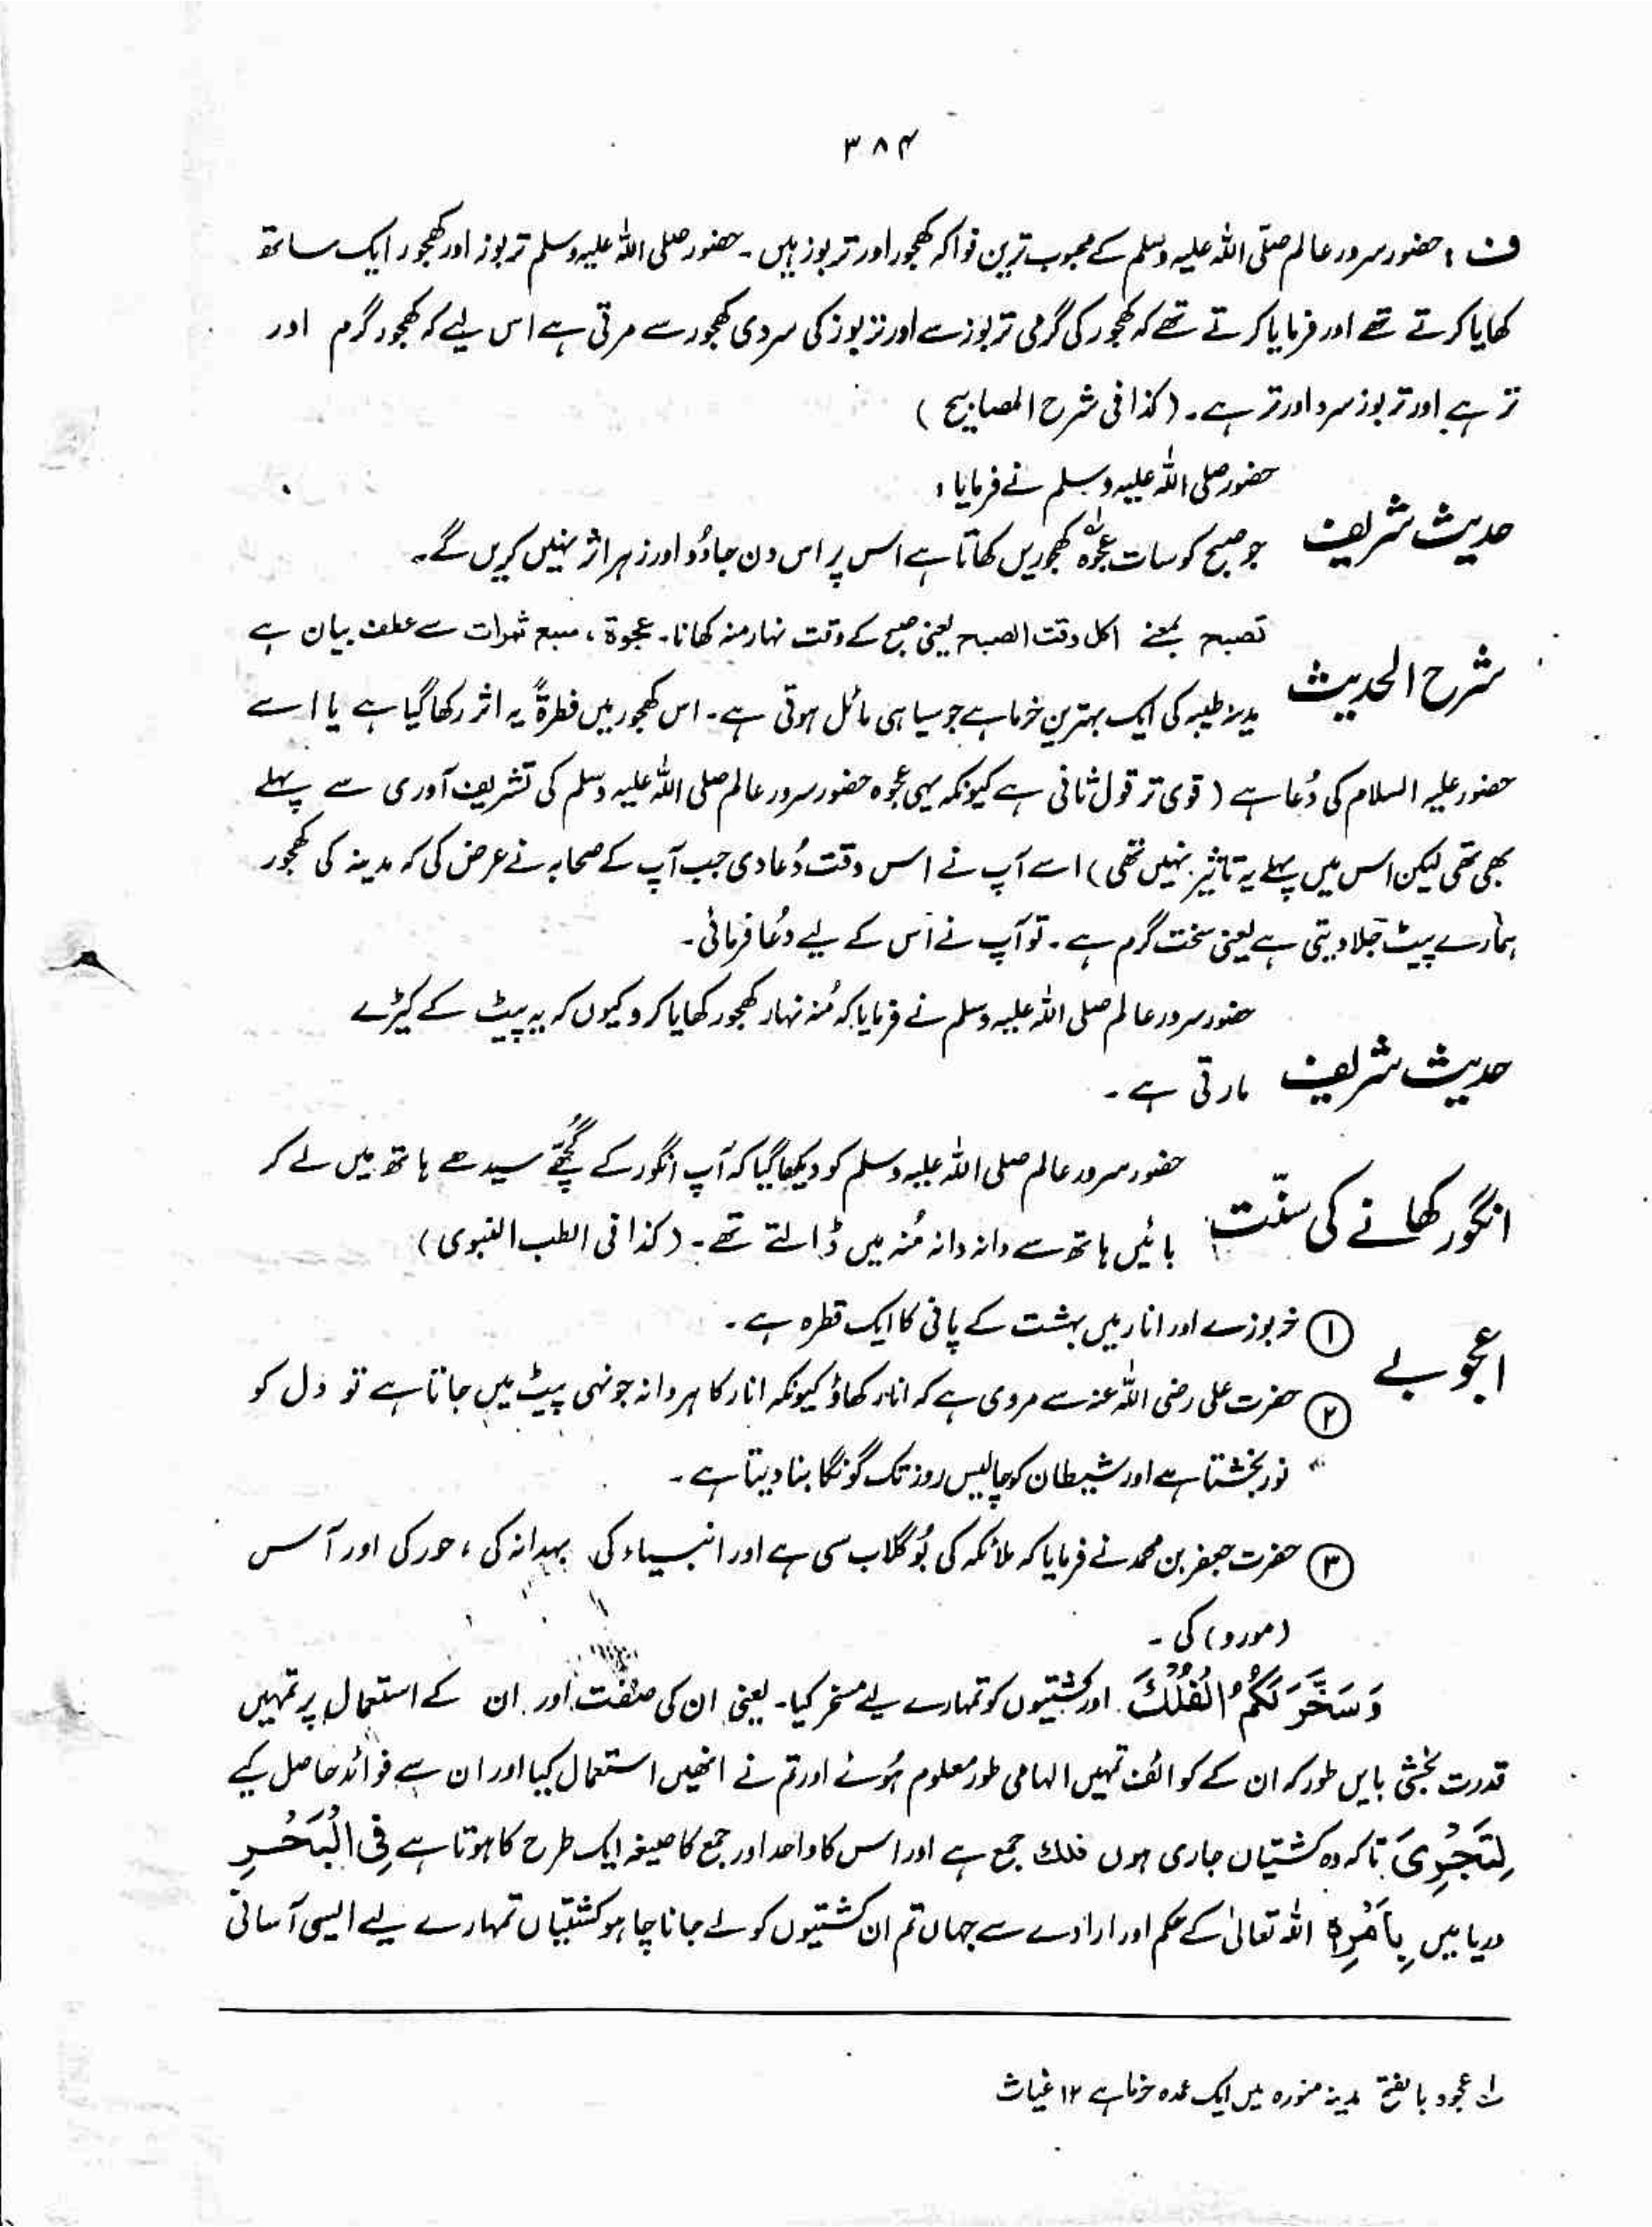 ۳۸۴
ف : حضور سرور عالم صلّی اللہ علیہ وسلم کے محبوب ترین فواکہ کھجور اور تربوز ہیں ۔ حضور صلی اللہ علیہ وسلم تربوز اور کھجور ایک ساتھ
کھایا کرتے تھے اور فرمایا کرتے تھے کہ کھجور کی گرمی تربوز سے اور تربوز کی سردی کھجور سے مرتی ہے اس لیے کہ کھجور گرم اور
تر ہے اور تربوز سرد اور تر ہے ۔ ( کذا فی شرح المصابیح )
حضور صلی اللہ علیہ وسلم نے فرمایا :
حدیث شریف جو صبح کو سات عجوہ لہ کھجوریں کھاتا ہے اس پر اس دن جادُو اور زہر اثر نہیں کریں گے ۔
تصبح بمعنے اکل وقت الصبح یعنی صبح کے وقت نہار منہ کھانا ۔ عجوۃ ، سبع ثمرات سے عطف بیان ہے
شرح الحدیث مدینہ طیبہ کی ایک بہترین خرما ہے جو سیاہی مائل ہوتی ہے ۔ اس کھجور میں فطرۃً یہ اثر رکھا گیا ہے یا اسے
حضور علیہ السلام کی دُعا ہے ( قوی تر قول ثانی ہے کیونکہ یہی عجوہ حضور سرور عالم صلی اللہ علیہ وسلم کی تشریف آوری سے پہلے
بھی تھی لیکن اس میں پہلے یہ تاثیر نہیں تھی ) اسے آپ نے اس وقت دُعا دی جب آپ کے صحابہ نے عرض کی کہ مدینہ کی کھجور
ہمارے پیٹ جلا دیتی ہے یعنی سخت گرم ہے ۔ تو آپ نے اس کے لیے دُعا فرمائی ۔
حضور سرور عالم صلی اللہ علیہ وسلم نے فرمایا کہ مُنہ نہار کھجور کھایا کرو کیوں کہ یہ پیٹ کے کیڑے
حدیث شریف مارتی ہے ۔
حضور سرور عالم صلی اللہ علیہ وسلم کو دیکھا گیا کہ آپ انگور کے گُچھّے سیدھے ہاتھ میں لے کر
انگور کھانے کی سنّت بائیں ہاتھ سے دانہ دانہ مُنہ میں ڈالتے تھے ۔ ( کذا فی الطب النبوی )
اعجوبے ① خربوزے اور انار میں بہشت کے پانی کا ایک قطرہ ہے ۔
② حضرت علی رضی اللہ عنہ سے مروی ہے کہ انار کھاؤ کیونکہ انار کا ہر دانہ جونہی پیٹ میں جاتا ہے تو دل کو
نور بخشتا ہے اور شیطان کو چالیس روز تک گونگا بنا دیتا ہے ۔
③ حضرت جعفر بن محمد نے فرمایا کہ ملائکہ کی بُو گلاب سی ہے اور انبیاء کی بہدانہ کی ، حور کی اور آس
(مورو) کی ۔
وَسَخَّرَ لَكُمُ الْفُلْكَ اور کشتیوں کو تمہارے لیے مسخر کیا ۔ یعنی ان کی صنعت اور ان کے استعمال پر تمہیں
قدرت بخشی بایں طور کہ ان کے کوائف تمہیں الہامی طور معلوم ہُوئے اور تم نے انھیں استعمال کیا اور ان سے فوائد حاصل کیے
لِتَجْرِیَ تاکہ وہ کشتیاں جاری ہوں فلك جمع ہے اور اس کا واحد اور جمع کا صیغہ ایک طرح کا ہوتا ہے فِی الْبَحْرِ
دریا میں بِاَمْرِہٖ اللہ تعالیٰ کے حکم اور ارادے سے جہاں تم ان کشتیوں کو لے جانا چاہو کشتیاں تمہارے لیے ایسی آسانی
لہ عجوہ بالفتح مدینہ منورہ میں ایک عمدہ خرما ہے ۱۲ غیاث